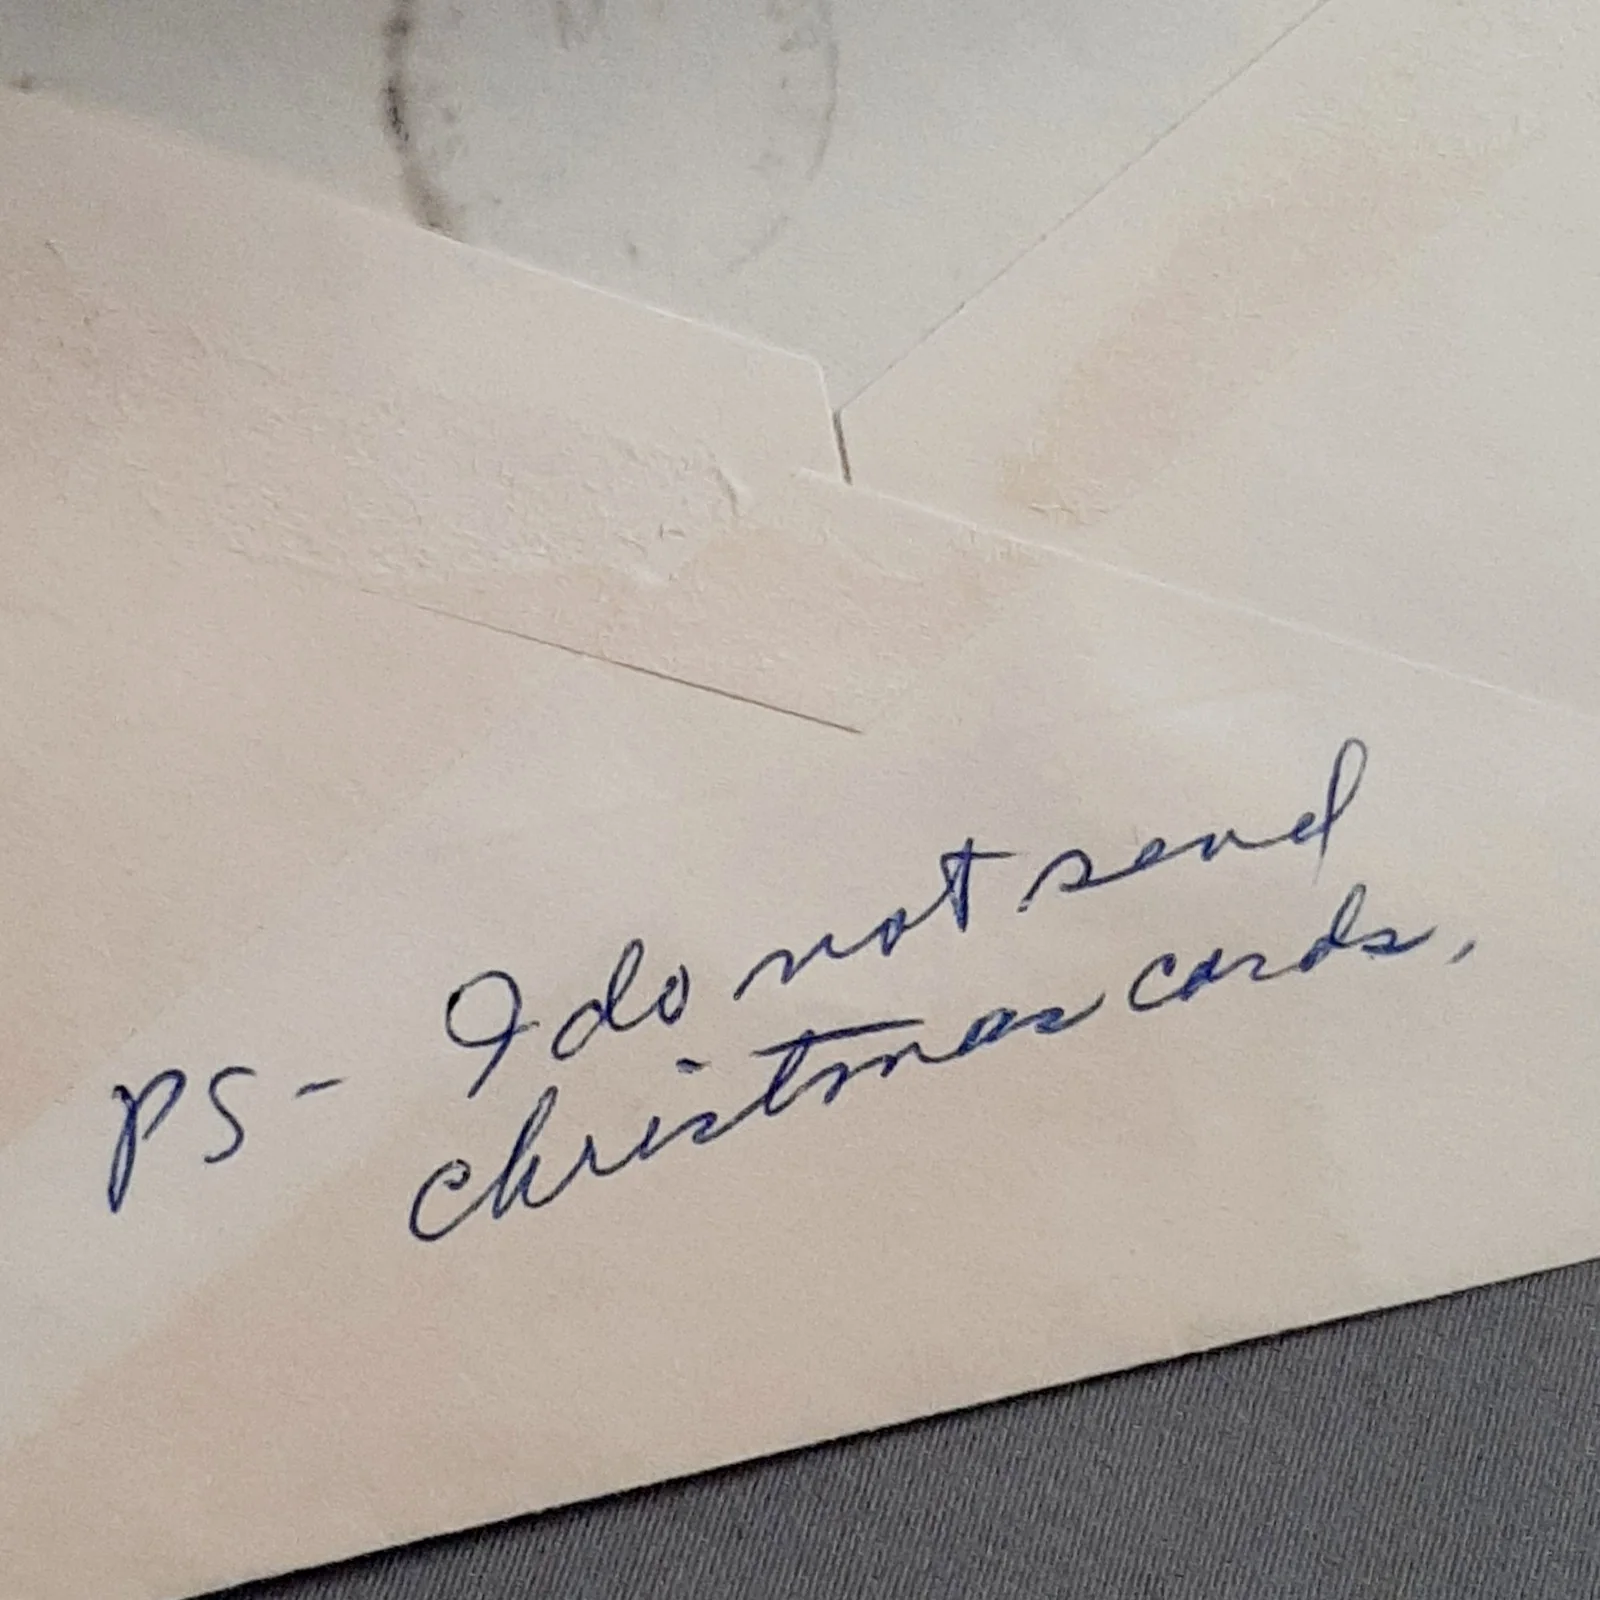 PS- I do not send
christmas cards.